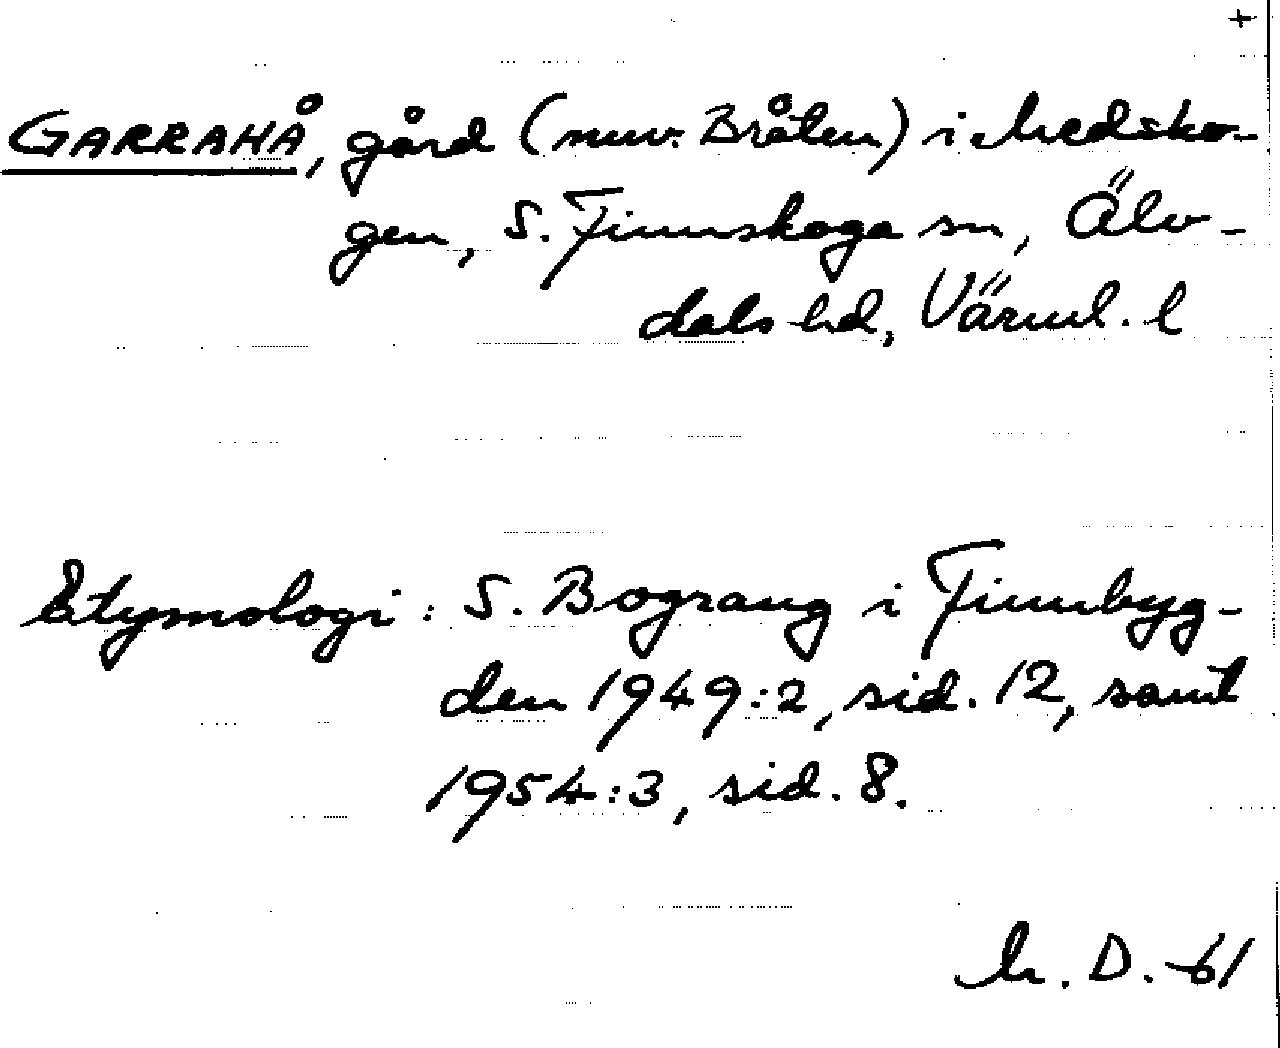 +
GARRAHÅ, gård (nuv. Bråten) i Medsko-
gen, S. Finnskoga sn, Älv-
dals hd, Värml. l
Etymologi: S. Bograng i Finnbyg-
den 1949:2, sid. 12, samt
1954:3, sid. 8.
M. D. -61